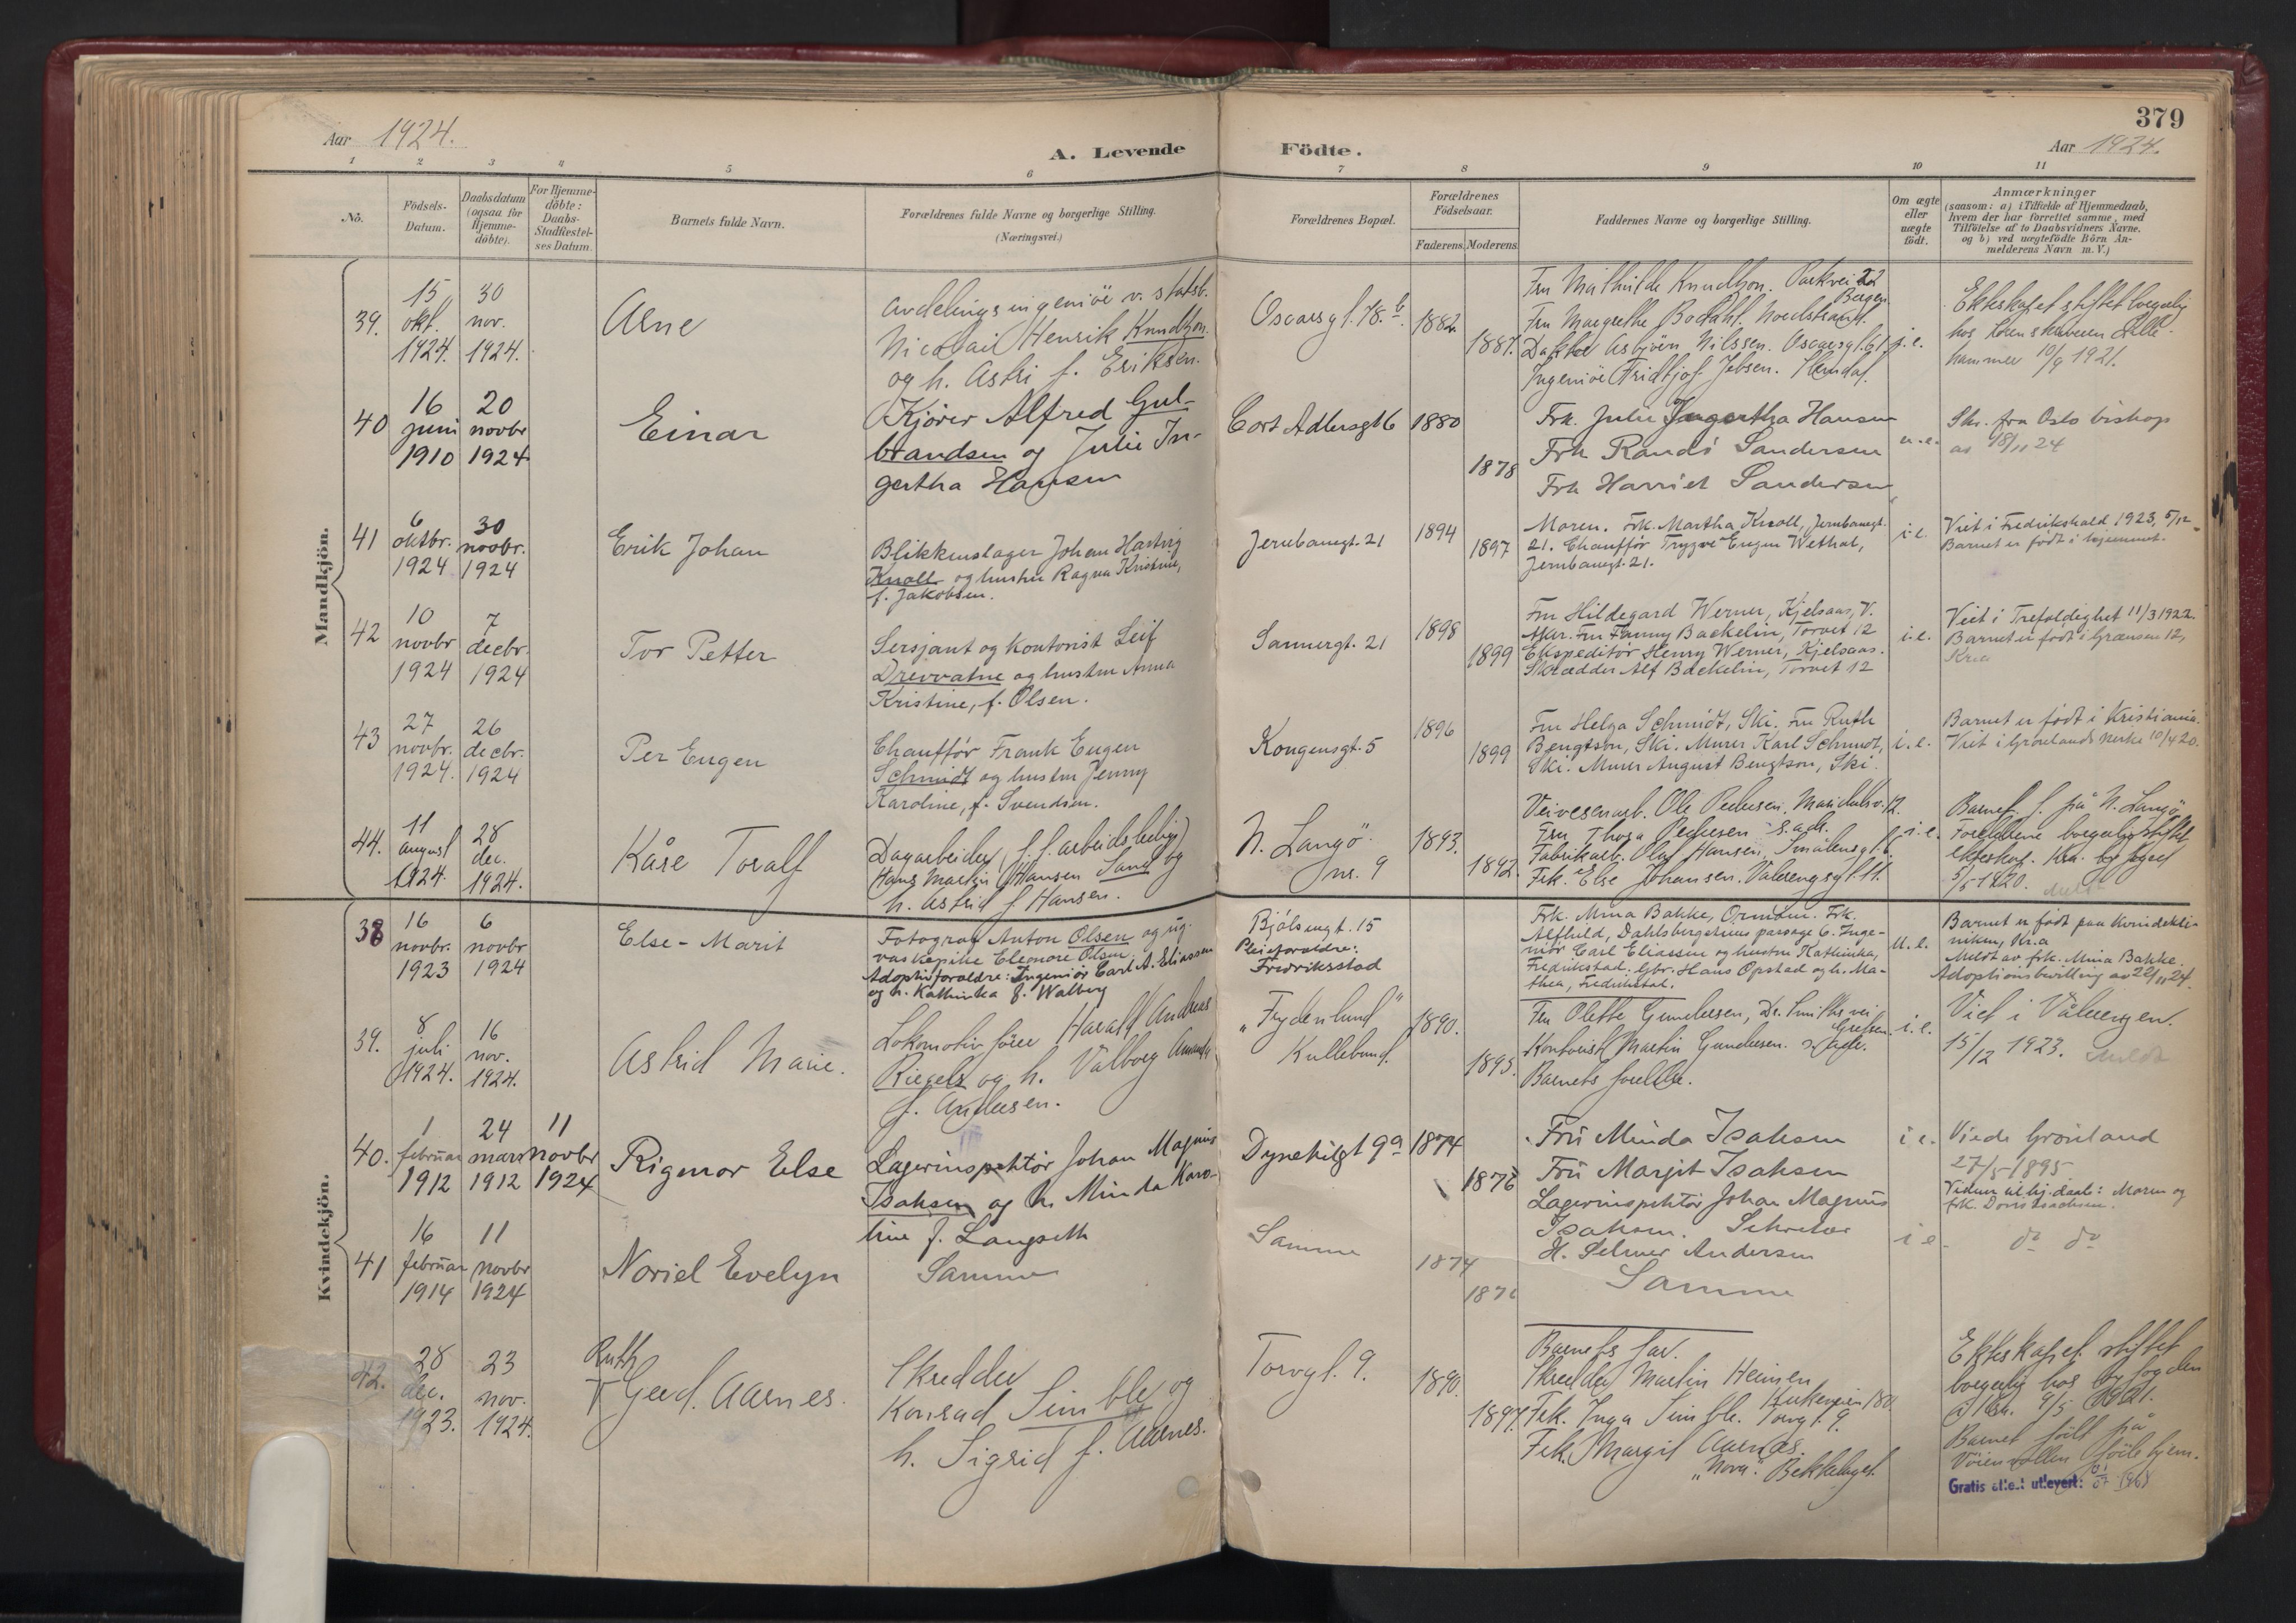 379
Aar 1924.
A. Levende
Födte.
Aar 1924.
1 2 3 4 5 6 7 8 9 10 11
No.
Födsels-
Datum.
Daabsdatum
(ogsaa for
Hjemme-
döbte).
For Hjemme-
döbte:
Daabs-
Stadfæstel-
ses Datum.
Barnets fulde Navn.
Forældrenes fulde Navne og borgerlige Stilling.
(Næringsvei.)
Forældrenes Bopæl.
Forældrenes
Födselsaar.
Faderens. Moderens.
Faddernes Navne og borgerlige Stilling.
Om ægte
eller
uægte
födt.
Anmærkninger
(saasom: a) i Tilfælde af Hjemmedaab,
hvem der har forrettet samme, med
Tilföielse af to Daabsvidners Navne.
og b) ved uægtefödte Börn An-
melderens Navn m. V.)
Mandkjön.
39.
15
okt.
1924.
30
nov.
1924.
Arne
Avdelingsingeniör v. statsb.
Nicolai Henrik Knudtzon
og h. Astri f. Eriksen.
Oscarsgt. 78.b
1882
1887.
Fru Mathilde Knudtzon. Parkvei 22
Bergen.
Fru Margrethe Bödahl. Nordstrand.
Doktor Asbjörn Nilssen. Oscarsgt. 61
Ingeniör Fridtjof Jebsen. Hemdal.
i. e.
Ekteskapet stiftet borgerlig
hos Sorenskriveren Lille-
hammer 10/9 1921.
40
16
juni
1910
20
novbr
1924
Einar
Kjörer Alfred Gul-
brandsen og Julie In-
gertha Hansen
Cort Adlersgt 6
1880
1878
Frk. Julie Ingertha Hansen
Frk Randi Sandersen
Frk Harriet Sandersen
u. e.
Skr. fra Oslo biskop
av 18/11 24
41
6
oktbr.
1924
30
novbr.
1924
Erik Johan
Blikkenslager Johan Hartvig
Knoll og hustru Ragna Kristine,
f. Jakobsen.
Jernbanegt. 21
1894
1897
Moren. Frk. Martha Knoll, Jernbanegt.
21. Chauffør Trygve Eugen Wethal,
Jernbanegt. 21.
i e.
Viet i Fredrikshald 1923, 5/12
Barnet er født i hjemmet.
42
10
novbr
1924
7
decbr.
1924
Tor Petter
Sersjant og kontorist Leif
Drevvatne og hustru Anna
Kristine, f. Olsen.
Sannergt. 21
1898
1899
Fru Hildegard Werner, Kjelsaas, V.
Aker. Fru Fanny Backelin, Torvet 12
Ekspeditör Henry Werner, Kjelsaas.
Skrædder Alf Backelin, Torvet 12
i. e.
Viet i Trefoldighet 11/3 1922.
Barnet er födt i Grænsen 12,
Kra
43
27
novbr.
1924.
26
decbr.
1924
Per Eugen
Chauffør Frank Eugen
Schmidt og hustru Jenny
Karoline, f. Svendsen.
Kongensgt. 5
1896
1899
Fru Helga Schmidt, Ski. Fru Ruth
Bengtson, Ski. Murer Karl Schmidt,
Ski. Murer August Bengtson, Ski.
i. e.
Barnet er født i Kristiania.
Viet i Grønlands kirke 10/4 20.
44.
11
august
1924.
28
dec.
1924.
Kåre Toralf
Dagarbeider (f. t. arbeidsledig)
Hans Martin Hansen Sand og
h. Astrid f. Hansen.
N. Langö.
nr. 9
1893.
1892.
Veivesenarb. Ole Pedersen. Maridalsv. 12.
Fru Thora Pedersen s. adr.
Fabrikarb. Olaf Hansen. Smålensgt. 6
Frk. Else Johansen. Valerengsgt. 11.
i. e.
Barnet f. på N. Langö
Foreldrene borgerlig stiftet
ekteskap. Kra. byfoged
5/5 1920.
Kvindekjön.
38
16
novbr.
1923
6
novbr
1924
Else-Marit
Fotograf Anton Olsen og ug.
vaskepike Eleonore Olsen.
Adoptivforældre: Ingeniör Carl A. Eliassen
og h. Kathinka f. Walberg
Bjølsengt. 15
Pleieforældre:
Fredriksstad
Frk. Mina Bakke, Frk.
Alfhild, Dahlsbergstiens passage 6. Inge-
niör Carl Eliassen og hustru Kathinka,
Fredrikstad. Gbr. Hans Opstad og h. Ma-
thea, Fredrikstad.
u. e.
Barnet er født paa Kvindekli-
niken, Kr.a
Meldt av frk. Mina Bakke.
Adoptionsbevilling av 22/11 24.
39.
8
juli
1924.
16
nov.
1924.
Astrid Marie.
Lokomotivförer Harald Andreas
Riegels og h. Valborg Amanda
f. Andersen.
"Frydenlund"
Kullebund.
1890.
1895.
Fru Olette Gundersen, Dr. Smiths vei
Grefsen
Kontorist Martin Gundersen. s. adr.
Barnets foreldre.
i. e.
Viet i Vålerengen.
15/12 1923. Meldt
40.
1
februar
1912
24
mars
1912
11
novbr
1924
Rigmor Else
Lagerinspektör Johan Magnus
Isaksen og h. Minda Karo-
line f. Langseth
Dynekilgt 9a
1874
1876
Fru Minda Isaksen
Frü Margit Isaksen
Lagerinspektör Johan Magnus
Isaksen. Sekretær
H. Selmer Andersen
i e.
Viede Grønland
27/5 1895
Vidner til hj.daab: Moren og
frk. Doris Isachsen.
41
16
februar
1914
11
novbr
1924
Noriel Evelyn
Samme
Samme
1874
1876
Samme
i e.
do do
42.
28
dec.
1923.
23
nov.
1924.
Ruth
Gerd. Aarnes.
Skredder
Konrad Simble og
h. Sigrid f. Aarnes.
Torvgt. 9.
1890.
1897.
Barnets far.
Skredder Martin Heinen
Kirkeveien 180
Frk. Inga Simble. Torvgt. 9.
Frk. Margit Aarnes.
"Nora". Bekkelaget.
Ekteskapet stiftet
borgerlig hos byfogden
i Kra. 9/5 1921.
Barnet född på
Vöienvollen födehjem.
Gratis attest utlevert: